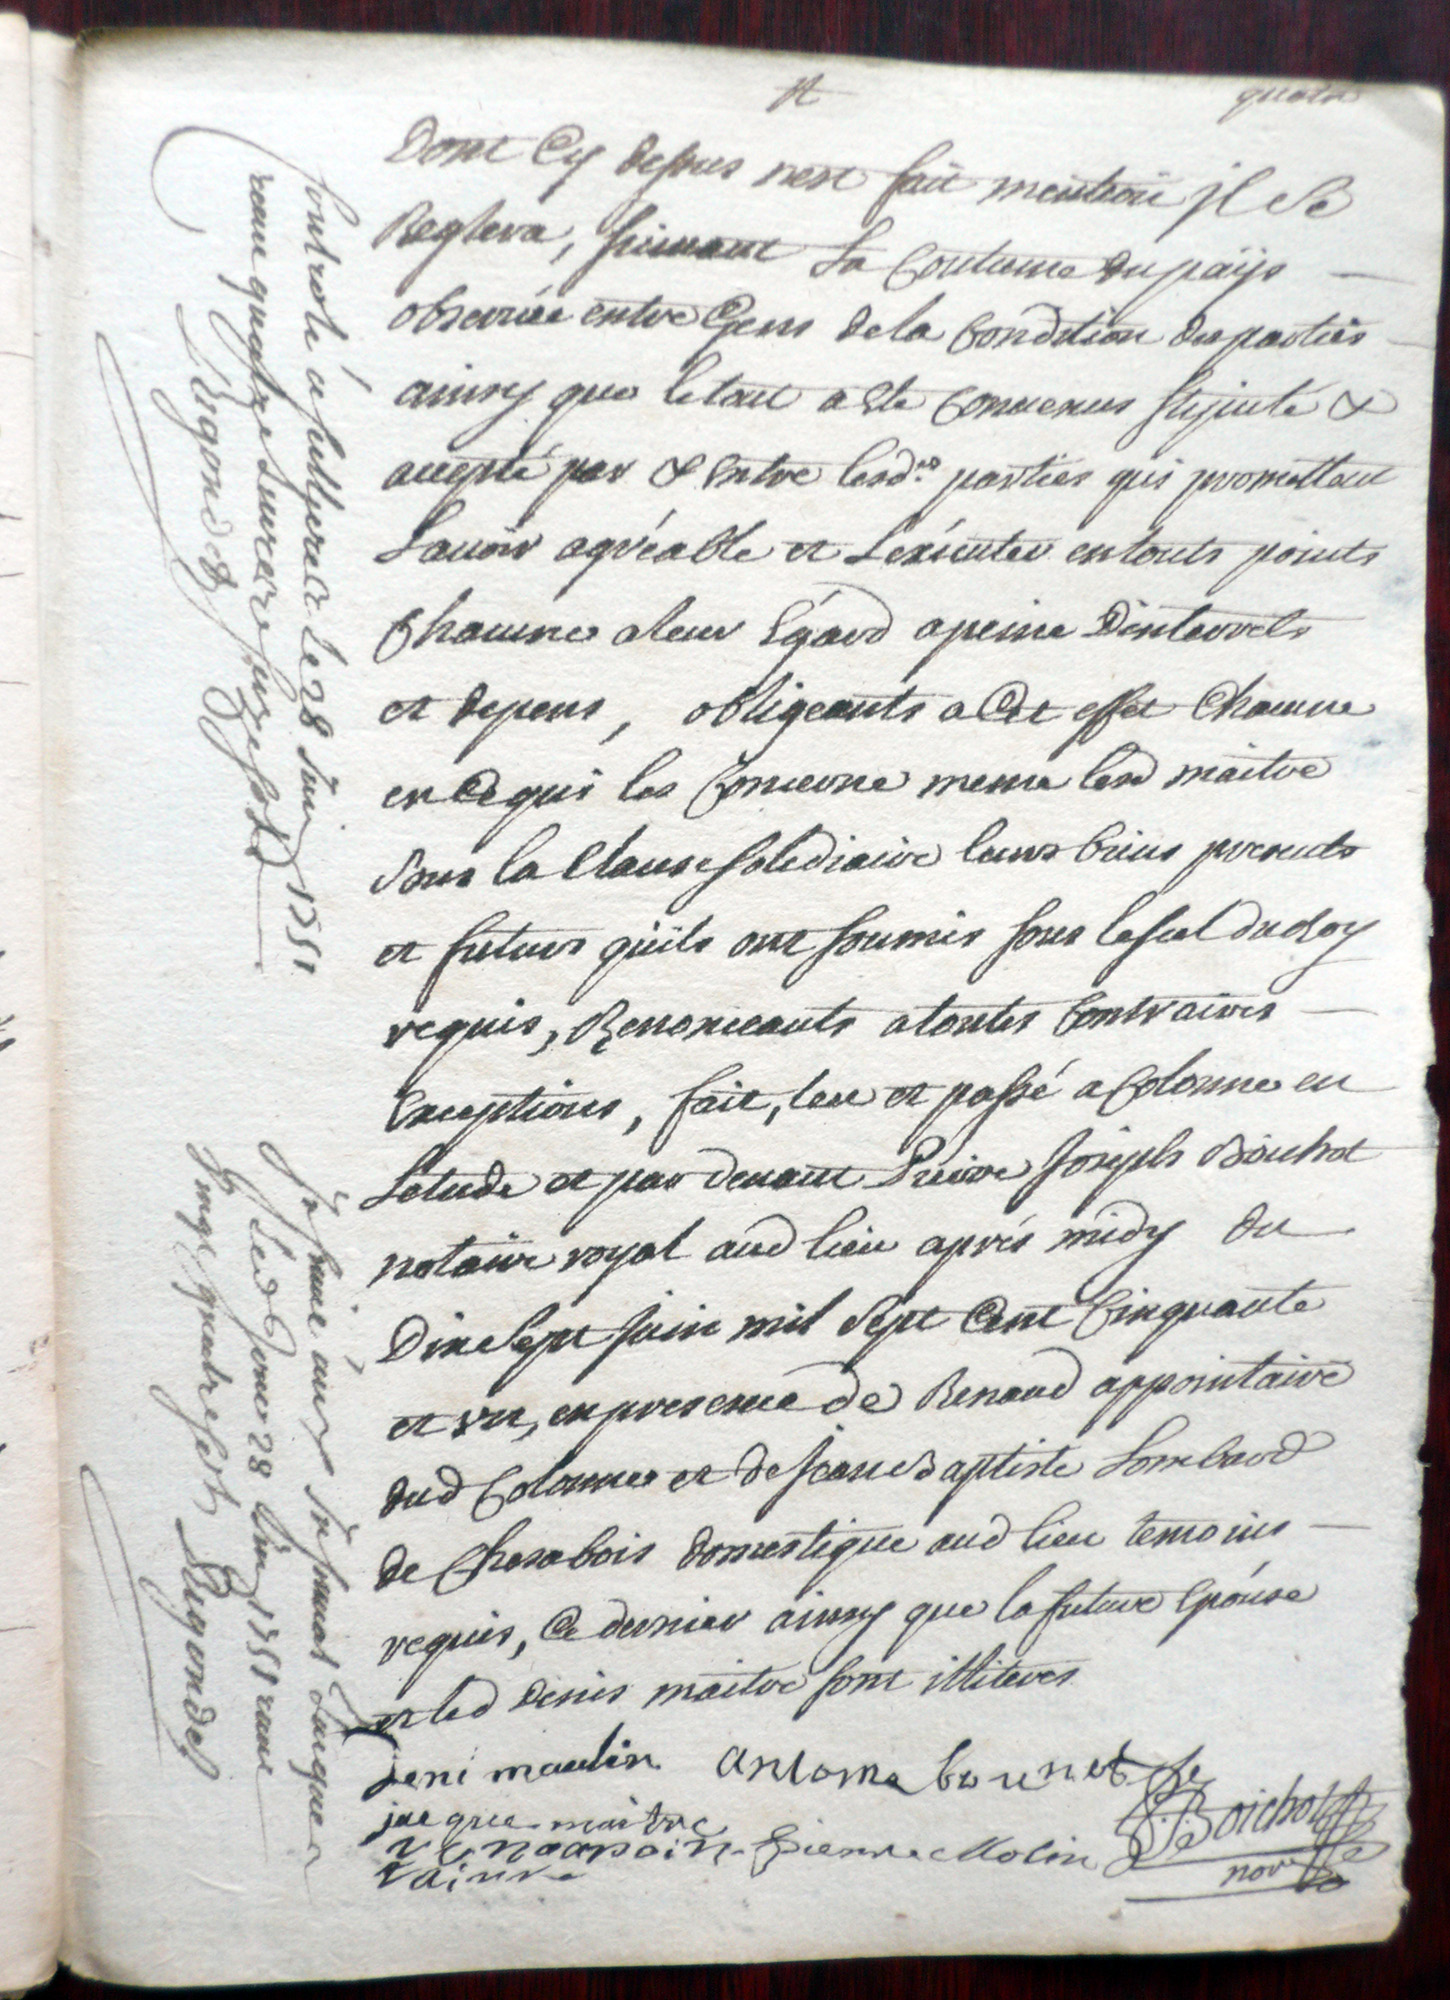 quatre
Dont Cy dessus nest fait mention il se
Reglera, suivant la Coutume du païis
observée entre Gens de la Condition des parties
ainsy que le tout a ete Convenus stipulé &
accepté par & Entre lesd.es parties qui promettent
Lavoir agréable et Lexécuter en touts points
Chacune a leur Egard a peine D'interrets
et depens, obligeants a Cet effet Chacune
en Ce qui les Concerne meme lesd maitre
sous la Clause solediaire leurs biens presents
et futurs quils ont soumis sous le scel du Roy
requis, Renonceants a toutes Contraires
Exceptions, fait, leu et passé a Colonne en
Letude et par devant Pierre Joseph Boichot
notaire royal aud lieu aprés midy du
Dix Sept juin mil Sept Cent Cinquante
et un, en presence de Renaud appointaire
dud Colonne et de jean Baptiste Lombard
de domestique aud lieu temoins
requis, Ce dernier ainsy que la future Epouse
et led Denis maitre sont illiteres
Deni maulin antoine bounet
jacque maitre
Pierre Molin
P. J. Boichot
nore
Controlé a Sellieres le 28 juin 1751
receu quatre livres
Rigondey
Insinué aux
led jour 28 juin 1751 receu
Rigondey